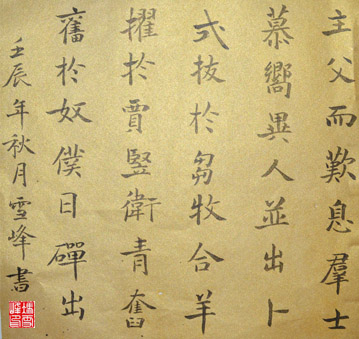 主父而歎息羣士
慕嚮異人並出卜
式拔於芻牧合羊
擢於賈豎衛青奮
奮於奴僕日磾出
壬辰年秋月雪峰書